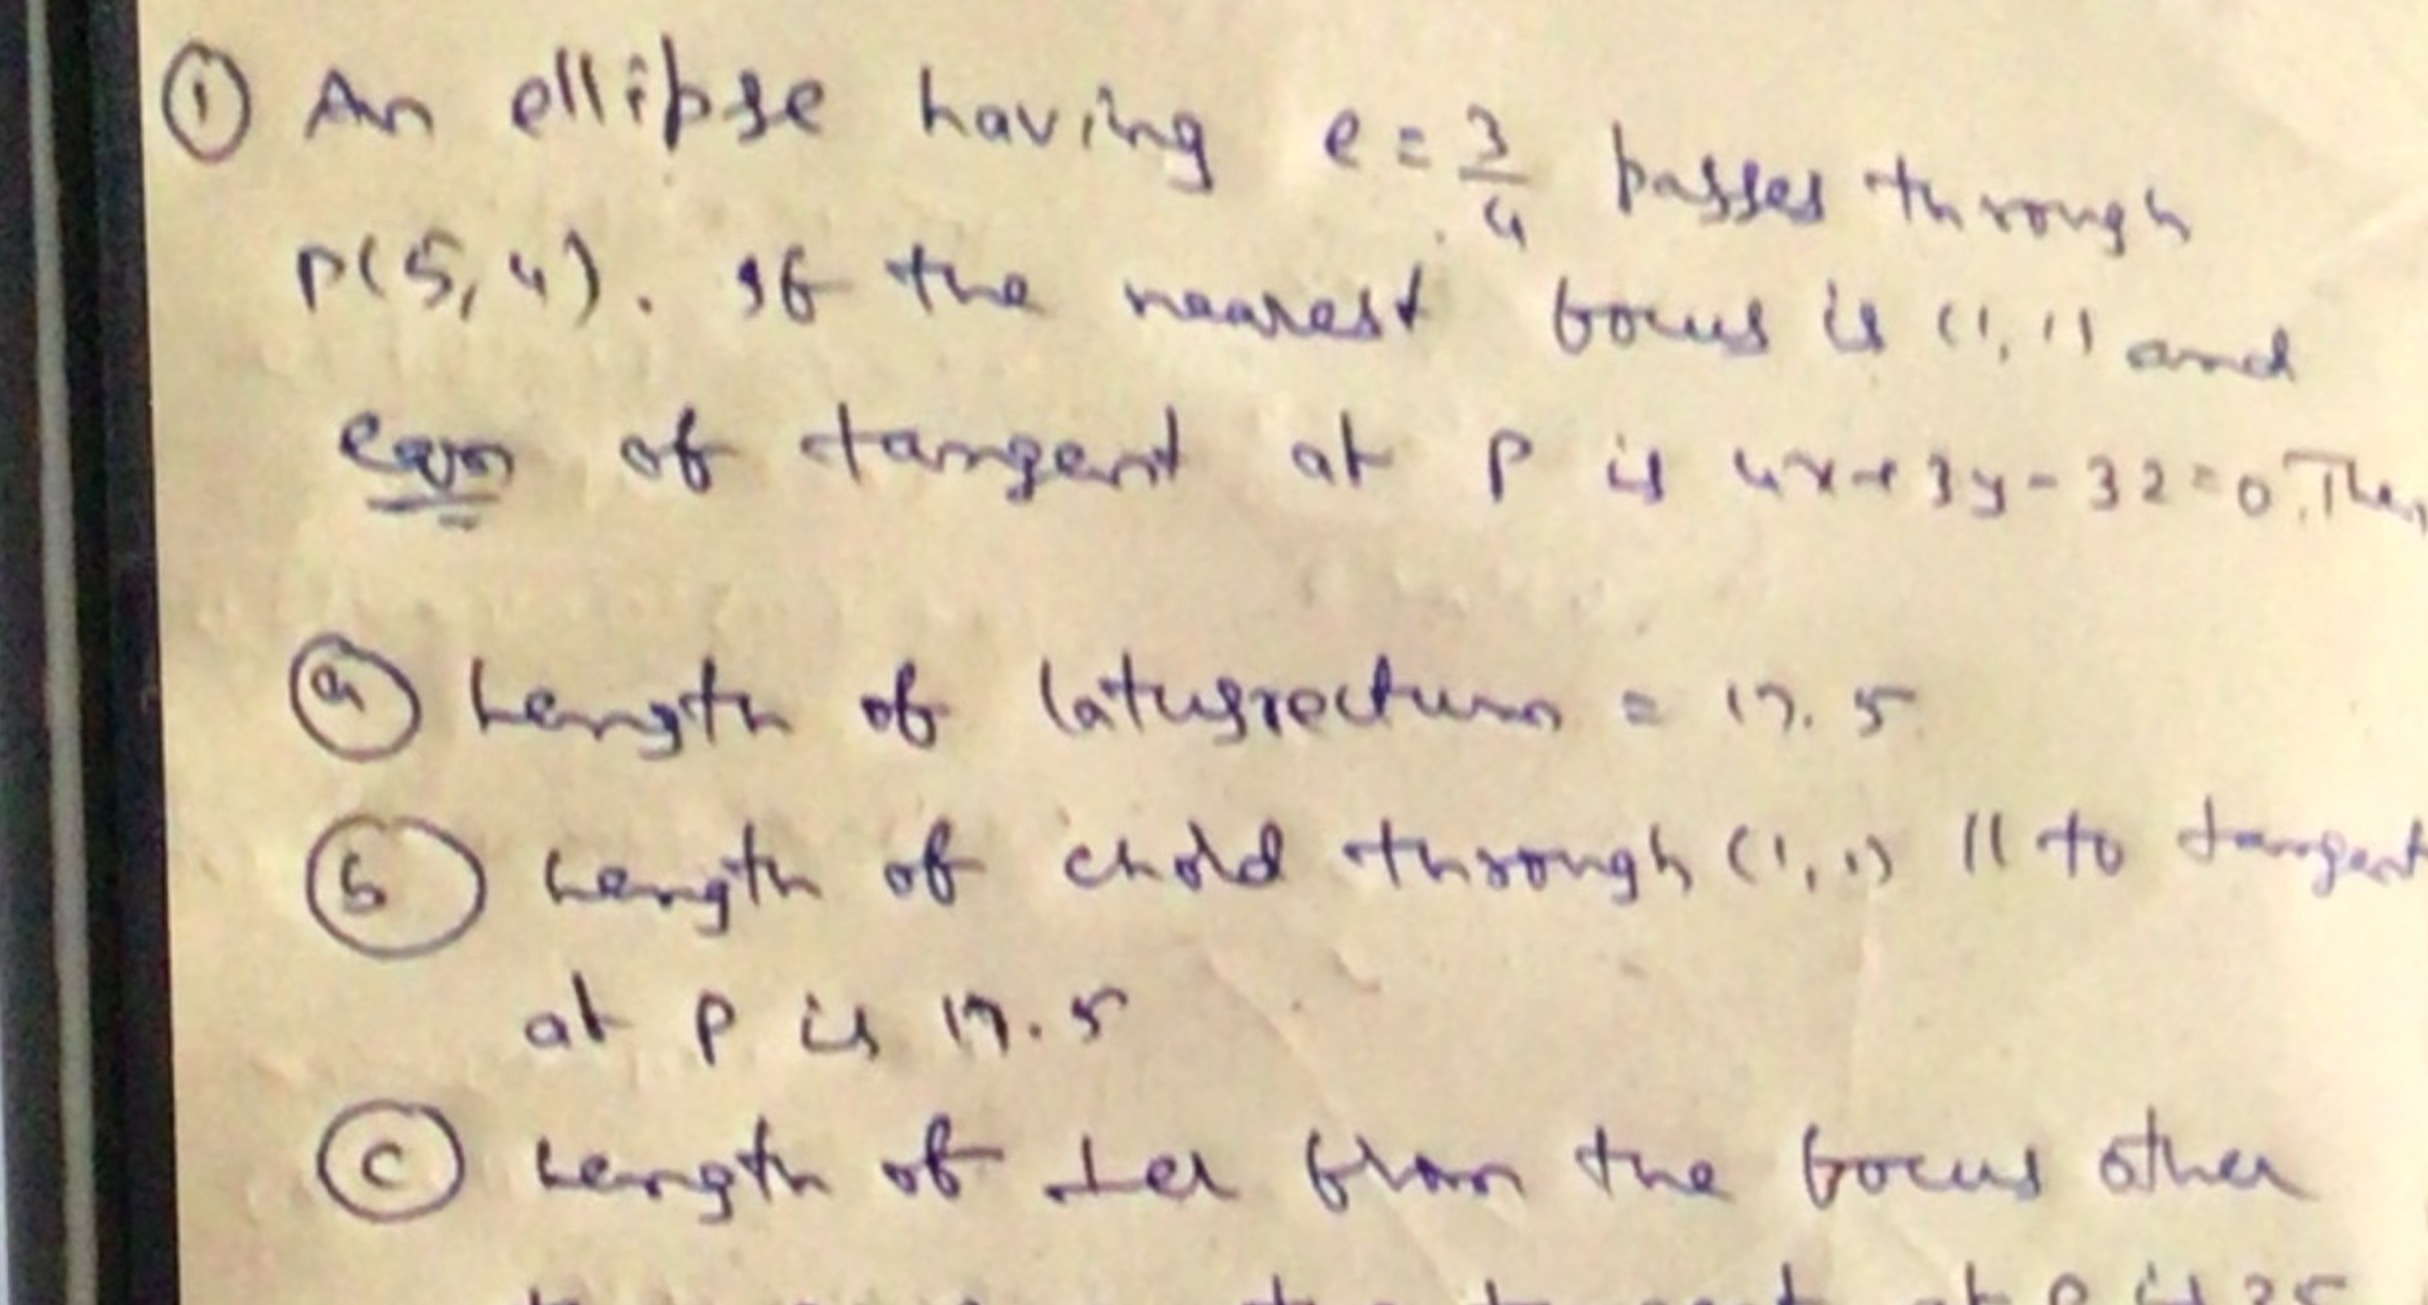 ① An ellipse having e = 3/4 passes through
P(5,4). If the nearest focus is (1,1) and
eqn of tangent at P is 4x+3y-32=0. Then
ⓐ Length of latusrectum = 17.5
ⓑ Length of chord through (1,1) || to tangent
at P is 17.5
ⓒ Length of ⊥er from the focus other
at P is 25